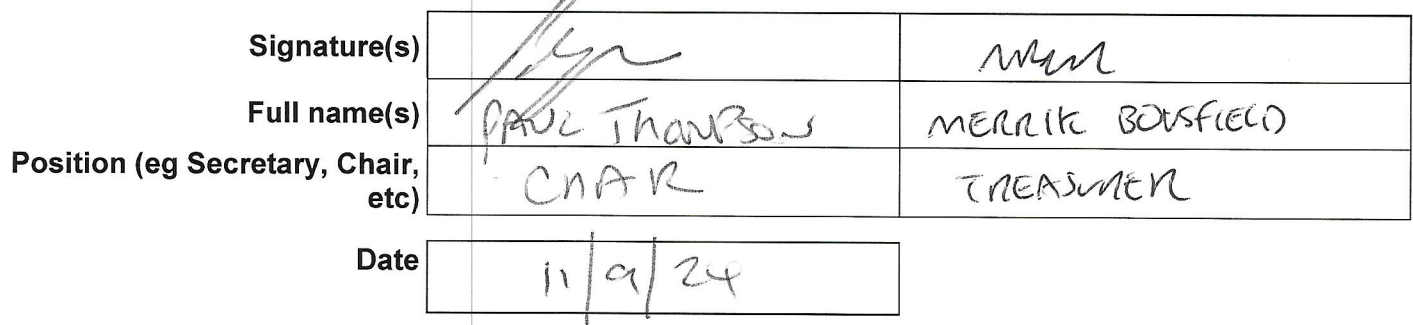 Signature(s)
Full name(s) PAUL THOMPSON MERRIK BOUSFIELD
Position (eg Secretary, Chair, CHAIR TREASURER
etc)
Date 11/9/24